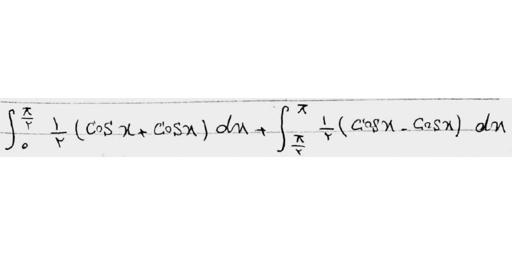 ∫₀^{π/۲} ۱/۲ (cos x + cos x) dx + ∫_{π/۲}^{π} ۱/۲ (cos x - cos x) dx